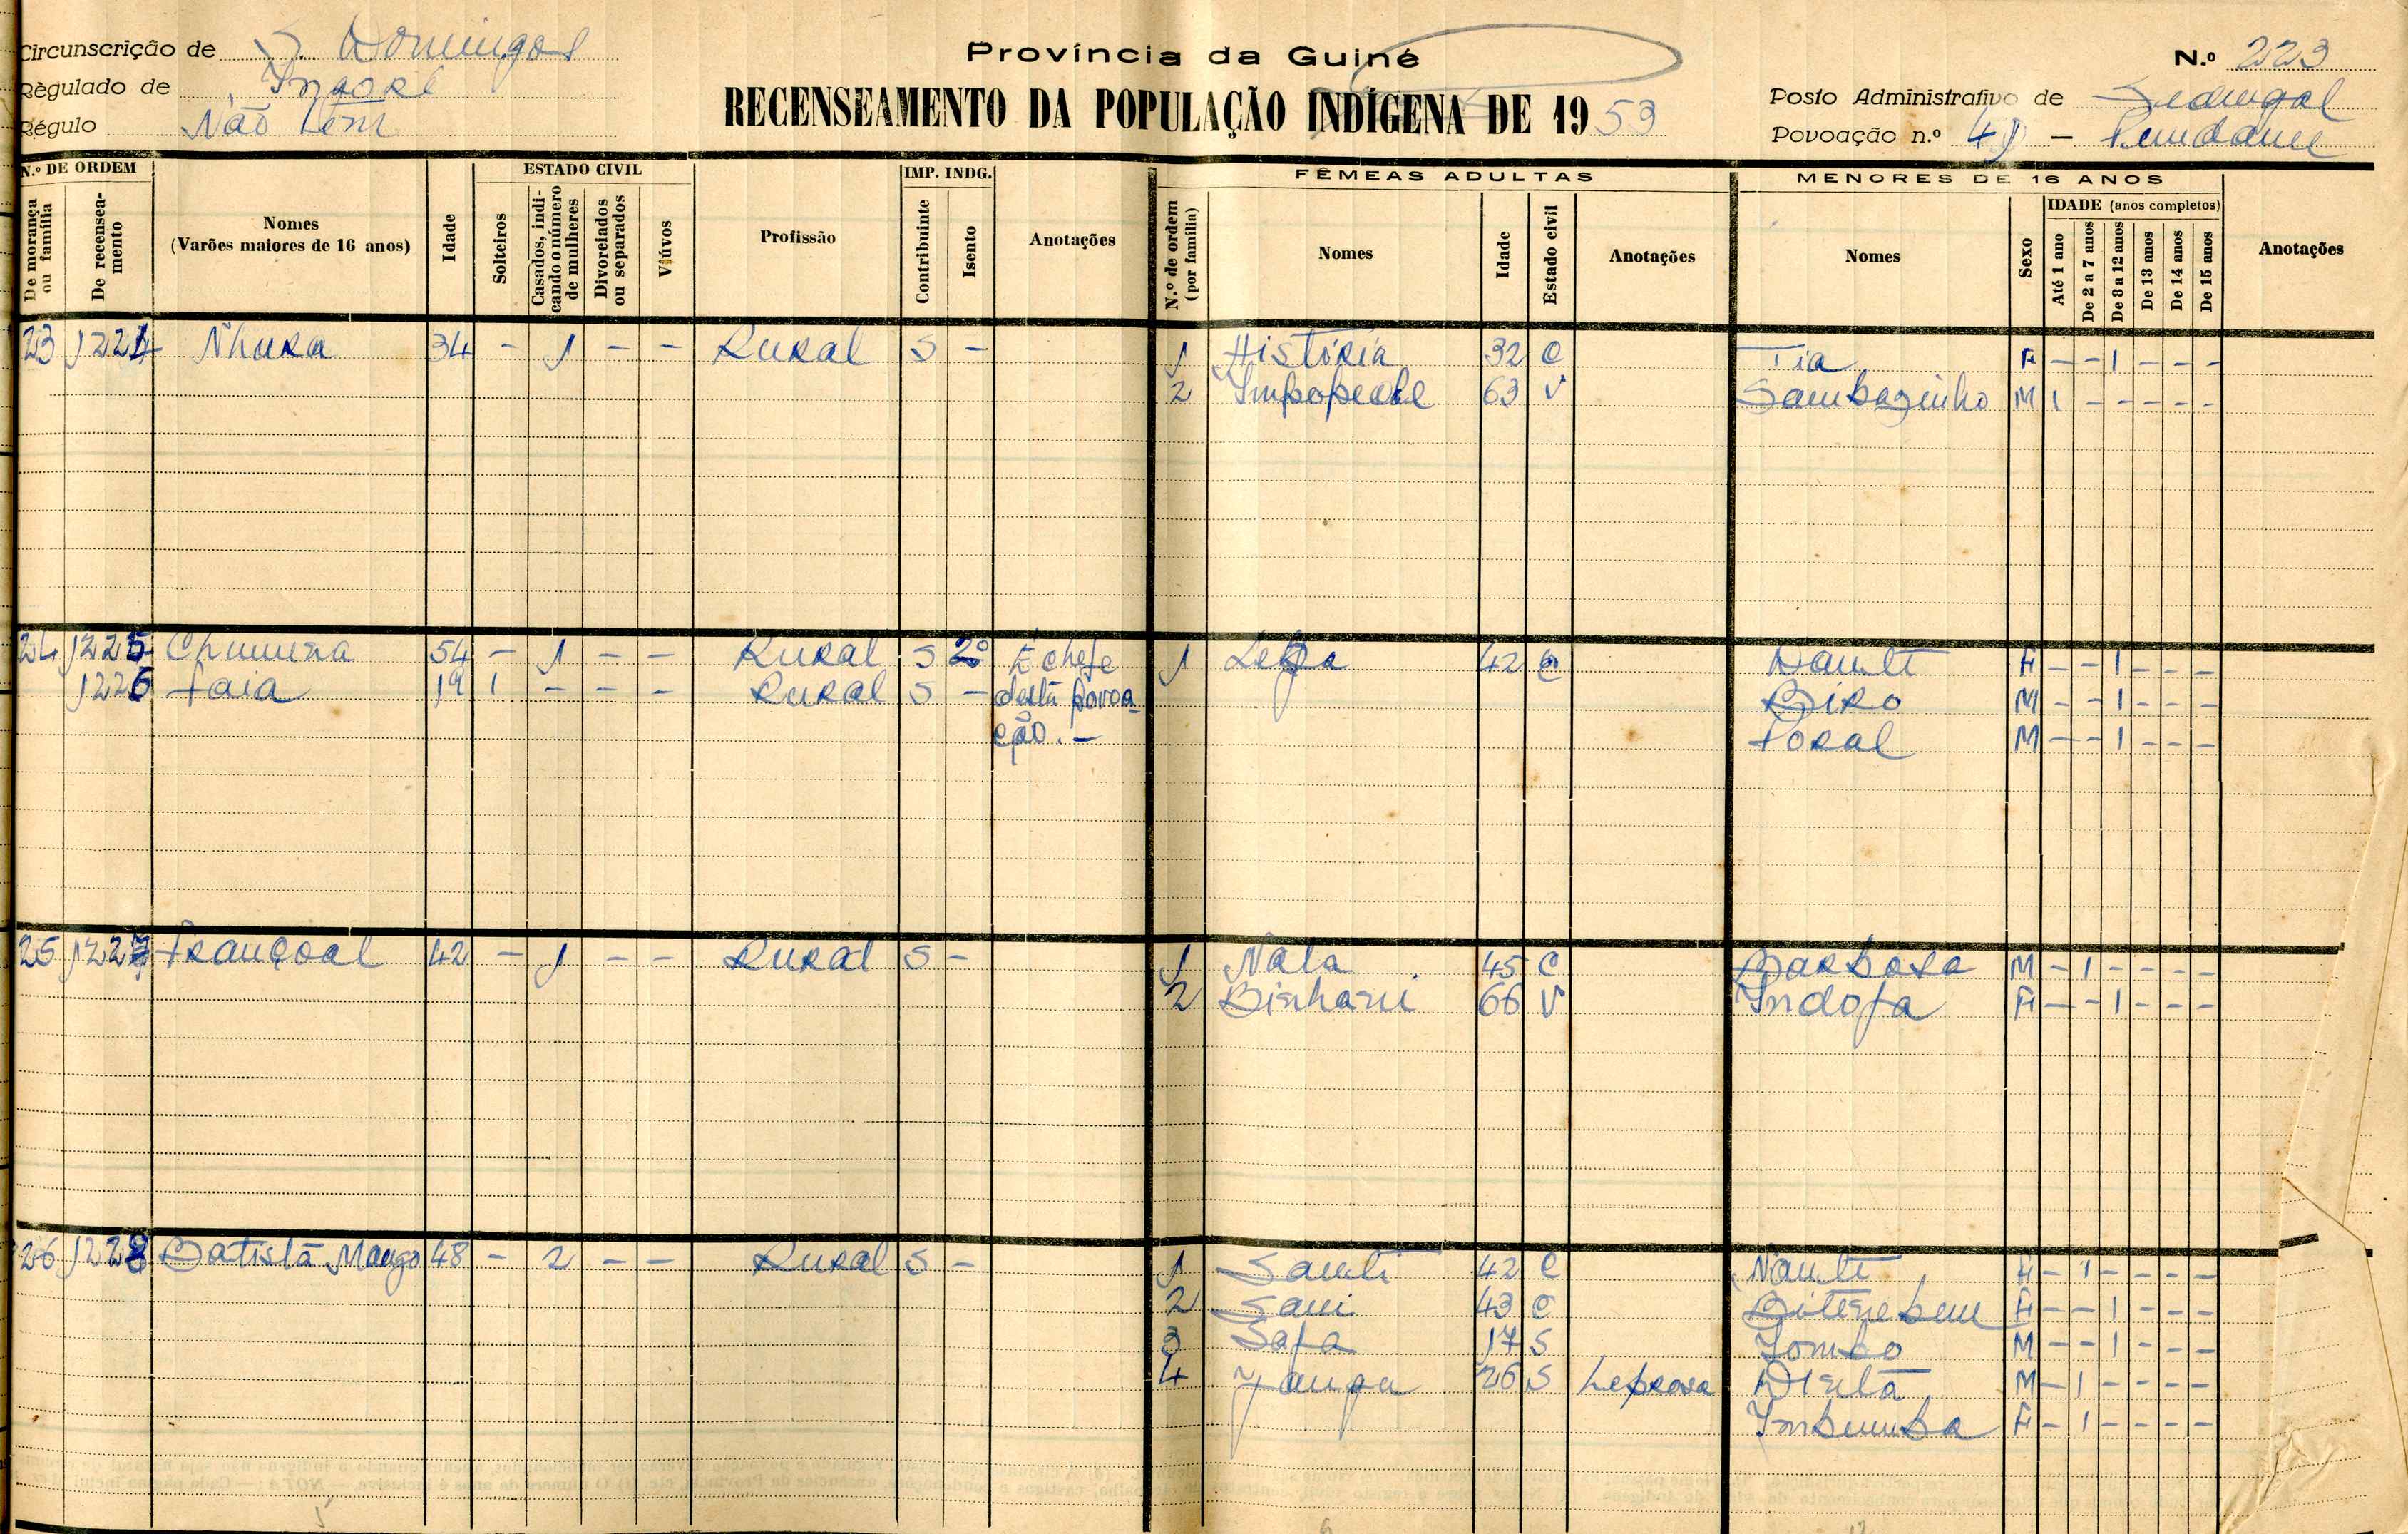 Circunscrição de S. Domingos
Régulado de Ingoré
Régulo Não tem
Província da Guiné
RECENSEAMENTO DA POPULAÇÃO INDÍGENA DE 1953
N.º 223
Posto Administrativo de Sedengal
Povoação n.º 49 -
N.º DE ORDEM
De morança ou família
De recenseamento
Nomes
(Varões maiores de 16 anos)
Idade
ESTADO CIVIL
Solteiros
Casados, indicando o número de mulheres
Divorciados ou separados
Viúvos
Profissão
IMP. INDG.
Contribuinte
Isento
Anotações
FÊMEAS ADULTAS
N.º de ordem (por família)
Nomes
Idade
Estado civil
Anotações
MENORES DE 16 ANOS
Nomes
Sexo
IDADE (anos completos)
Até 1 ano
De 2 a 7 anos
De 8 a 12 anos
De 13 anos
De 14 anos
De 15 anos
Anotações
23 1224 Nhura 34 - 1 - - Rural S - 1 História 32 C Tia F - - 1 - - -
2 63 V Sambazinho M 1 - - - - -
24 1225 54 - 1 - - Rural S 2º É chefe 1 42 C F - - 1 - - -
1226 Faia 19 1 - - - Rural S - desta povoa- Biro M - - 1 - - -
ção. - M - - 1 - - -
25 1227 Françoal 42 - 1 - - Rural S - 1 Nala 45 C Barbosa M - 1 - - - -
2 Binhani 66 V Indofa F - - 1 - - -
26 1228 Batista Mango 48 - 2 - - Rural S - 1 Samti 42 C F - 1 - - - -
2 43 C F - - 1 - - -
3 Safa 17 S Jombo M - - 1 - - -
4 26 S Leprosa M - 1 - - - -
F - 1 - - - -